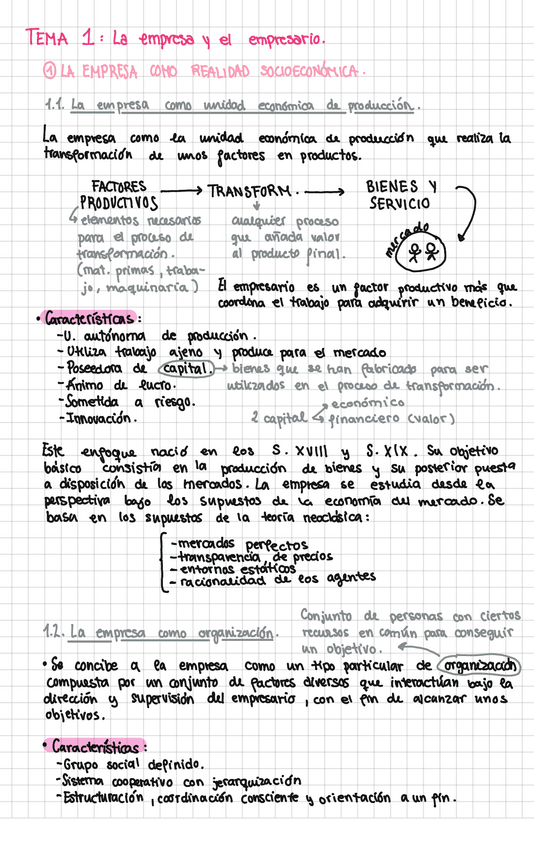 TEMA 1: La empresa y el empresario.
① LA EMPRESA COMO REALIDAD SOCIOECONÓMICA.
1.1. La empresa como unidad económica de producción.
La empresa como la unidad económica de producción que realiza la
transformación de unos factores en productos.
FACTORES PRODUCTIVOS → TRANSFORM. → BIENES Y SERVICIO
mercado
elementos necesarios
para el proceso de
transformación.
(mat. primas, traba-
jo, maquinaria)
cualquier proceso
que añada valor
al producto final.
El empresario es un factor productivo más que
coordina el trabajo para adquirir un beneficio.
• Características:
-U. autónoma de producción.
-Utiliza trabajo ajeno y produce para el mercado
-Poseedora de capital. → bienes que se han fabricado para ser
utilizados en el proceso de transformación.
-Ánimo de lucro.
-Sometida a riesgo.
-Innovación.
2 capital
económico
financiero (valor)
Este enfoque nació en los S. XVIII y S. XIX. Su objetivo
básico consistía en la producción de bienes y su posterior puesta
a disposición de los mercados. La empresa se estudia desde la
perspectiva bajo los supuestos de la economía del mercado. Se
basa en los supuestos de la teoría neoclásica:
-mercados perfectos
-transparencia de precios
-entornos estáticos
-racionalidad de los agentes
1.2. La empresa como organización.
Conjunto de personas con ciertos
recursos en común para conseguir
un objetivo.
• Se concibe a la empresa como un tipo particular de organización
compuesta por un conjunto de factores diversos que interactúan bajo la
dirección y supervisión del empresario, con el fin de alcanzar unos
objetivos.
• Características:
-Grupo social definido.
-Sistema cooperativo con jerarquización
-Estructuración, coordinación consciente y orientación a un fin.